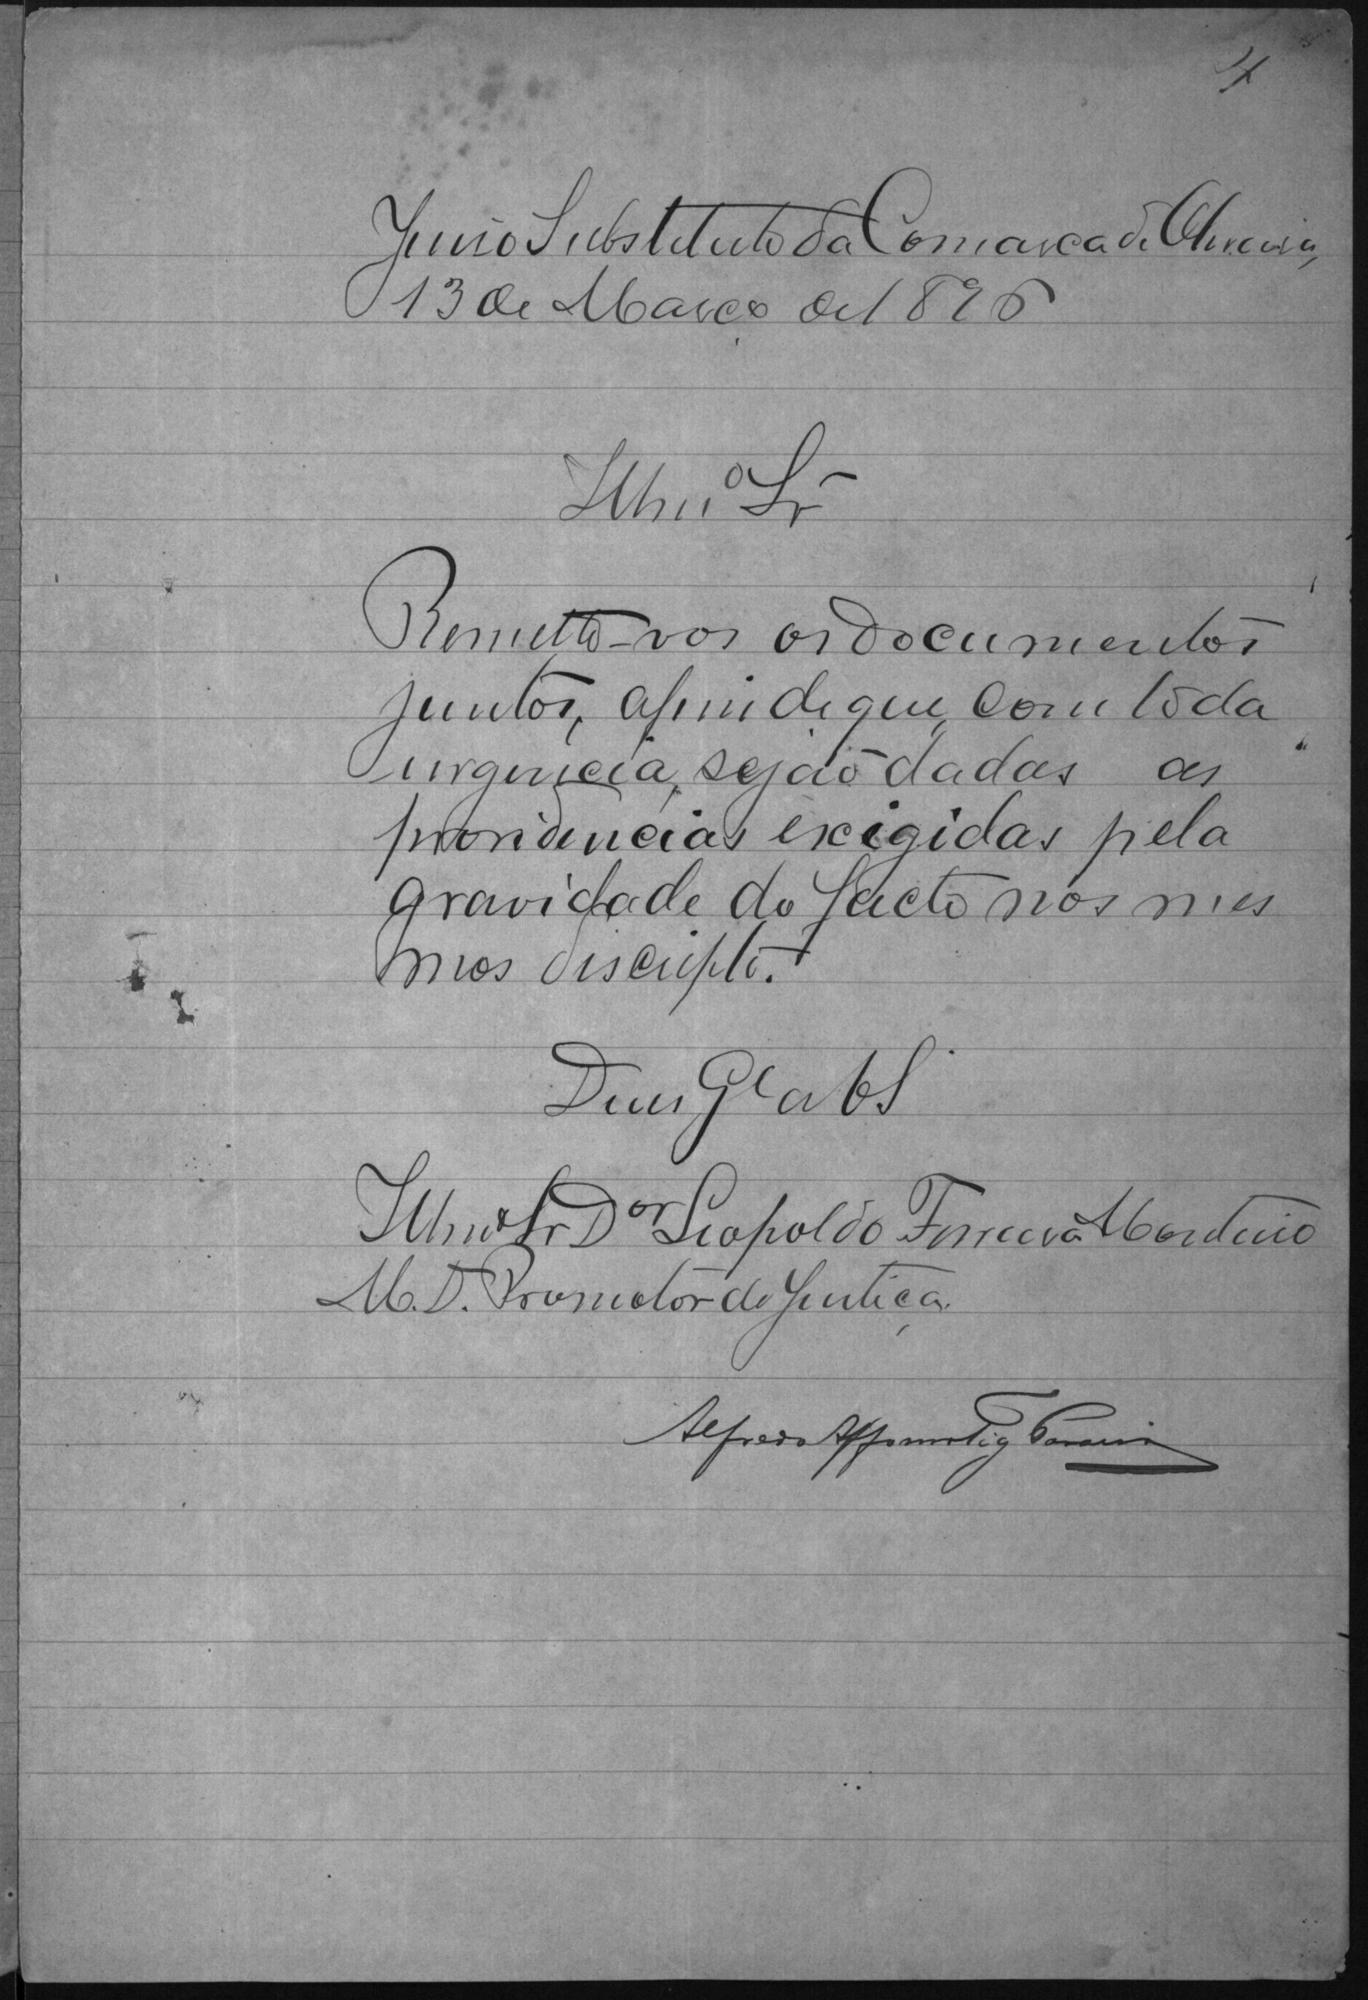 4
Juiso Substituto da Comarca de Oliveira,
13 de Março de 1896
Illmº Sr
Remetto-vos os documentos
juntos, afim de que, com toda
urgencia, sejão dadas as
providencias exigidas pela
gravidade do facto nos mes
mos discripto.
Deus Gᵉ a VS
Illmº Sr Dor Leopoldo Ferreira Monteiro
M. D. Promotor de Justiça.
Alfredo